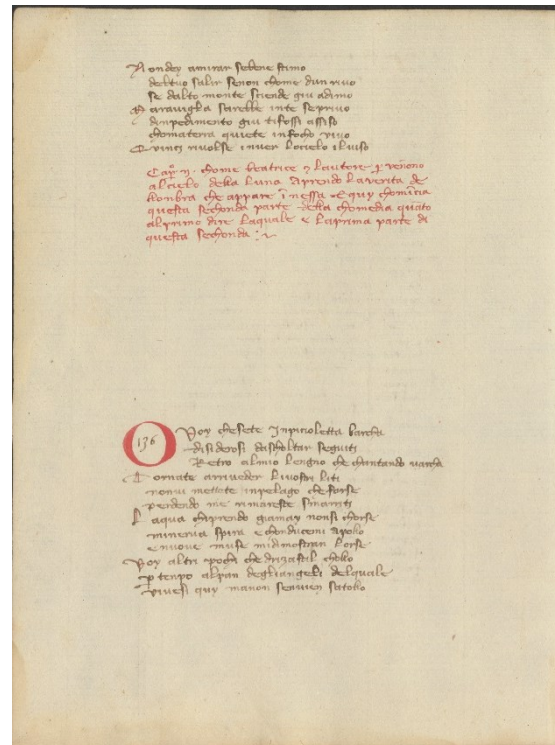 Non dey amirar sebene stimo
deltuo salir senon chome dun rivo
se dalto monte sciende giu adimo
Maravigla sarebbe inte seprivo
dinpedimento giu tifossi assiso
chomaterra quiete infocho vivo
Quinci rivolse inver locielo il viso
Capo ij. chome beatrice 7 lautore pervenono
alcielo della luna aprendo laverita de
lonbra che appare inessa. E quy chomincia
questa sechonda parte della chomedia quato
alprimo dire laquale e laprima parte di
questa sechonda
O Voy chesete Inpicioletta barcha
disiderosi dascholtar seguiti
Retro almio lengno che chantando varcha
Tornate arriveder livostri liti
nonvi mettete inpelago che forse
perdendo me rimareste smariti
Laqua chiprendo giamay nonsi chorse
minerva spira e chonducemi apollo
e nuove muse midimostran lorse
Voy altri pochi che drizastil chollo
per tenpo alpan degliangeli delquale
vivesi quy manon senvien satollo
136